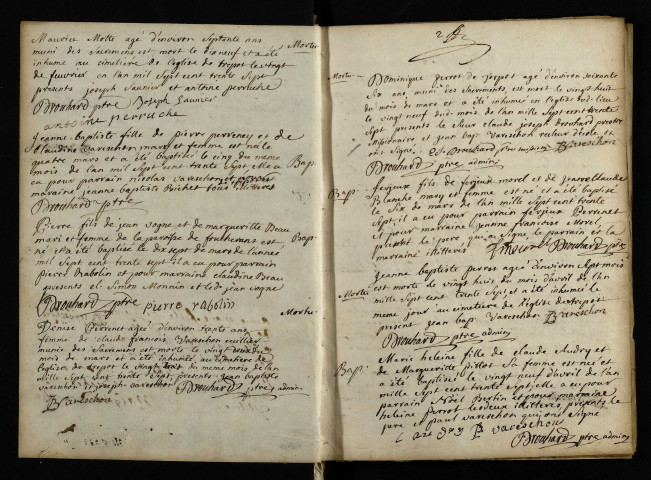 Maurice Motte agé d'environ septante ans
muni des sacremens est mort le dix neuf et a été
Mortu.
inhumé au cimetiere de l'eglise de trepot le vingt
de fevrier en l'an mil sept cent trente sept
presents joseph saunier et antoine perruche
Brouhard ptre Joseph Saunier
antoine perruche
Jeanne baptiste fille de pierre perreney et de
Claudine vareschon mary et femme est née le
quatre mars et a été baptisée le cinq du meme
Bap:
mois de l'an mil sept cent trente sept, elle a
eu pour parrain nicolas vareschon et pour
maraine jeanne baptiste Bichet tous illiterés
Brouhard ptre
Pierre fils de jean vogne et de marguerite Beau
mari et femme de la paroisse de foucherans est
Bap:
né et a été baptisé le dix sept de mars de l'année
mil sept cent trente sept il a eu pour parrain
Pierre Rabolin et pour marraine claudine Beau
presents el Simon Monnin et led: jean vogne
Brouhard ptre pierre rabolin
Mortu:
Denise Perrenet agé d'environ trente ans
femme de claude francois vareschon
munie des sacremens est morte le vingt deux du
mois de mars et a été inhumée au cimetiere de
l'eglise de trepot le vingt trois du meme mois de l'an
mille sept cent trente sept, presents jean baptiste
vareschon et joseph vareschon Brouhard ptre admin:
B vareschon
Mortu:
Dominique perrot de trepot agé d'environ soixante
six ans muni des sacrements, est mort le vingt huit
du mois de mars et a été inhumé en l'eglise dud: lieu
le vingt neuf dud: mois de l'an mille sept cent trente
sept presents le sieur claude joseph Brouhard prestre
missionaire et jean bap: vareschon recteur d'école qui
ont signé. Cl: Brouhard, ptre missionaire B vareschon
Brouhard ptre admin:
Bap:
ferjeux fils de ferjeux morel et de jeanne claude
Blanche mary et femme est né et a été baptisé
le six de mars de l'an mille sept cent trente
sept il a eu pour parrain ferjeux Perrenet
et pour marraine jeanne francoise Morel,
present le pere qui a signé, le parrain et la
marraine illiterés F morel Brouhard ptre
Mortu:
Jeanne baptiste perrot agée d'environ sept mois
est morte le vingt huit du mois d'avril de l'an
mille sept cent trente sept et a été inhumée le
meme jour au cimetiere de l'Eglise de trepot
present jean bap: vareschon B vareschon
Brouhard ptre admin:
Bap:
Marie heleine fille de claude Audry et
de Marguerite Pillot sa femme est née et
a été baptisée le vingt neuf d'avril de l'an
mille sept cent trente sept, elle a eu pour
parrain Noël Bertin et pour marraine
heleine perrot les deux illiterés, presents le
pere et paul vareschon qui ont signé
P vareschon
Brouhard ptre admin: